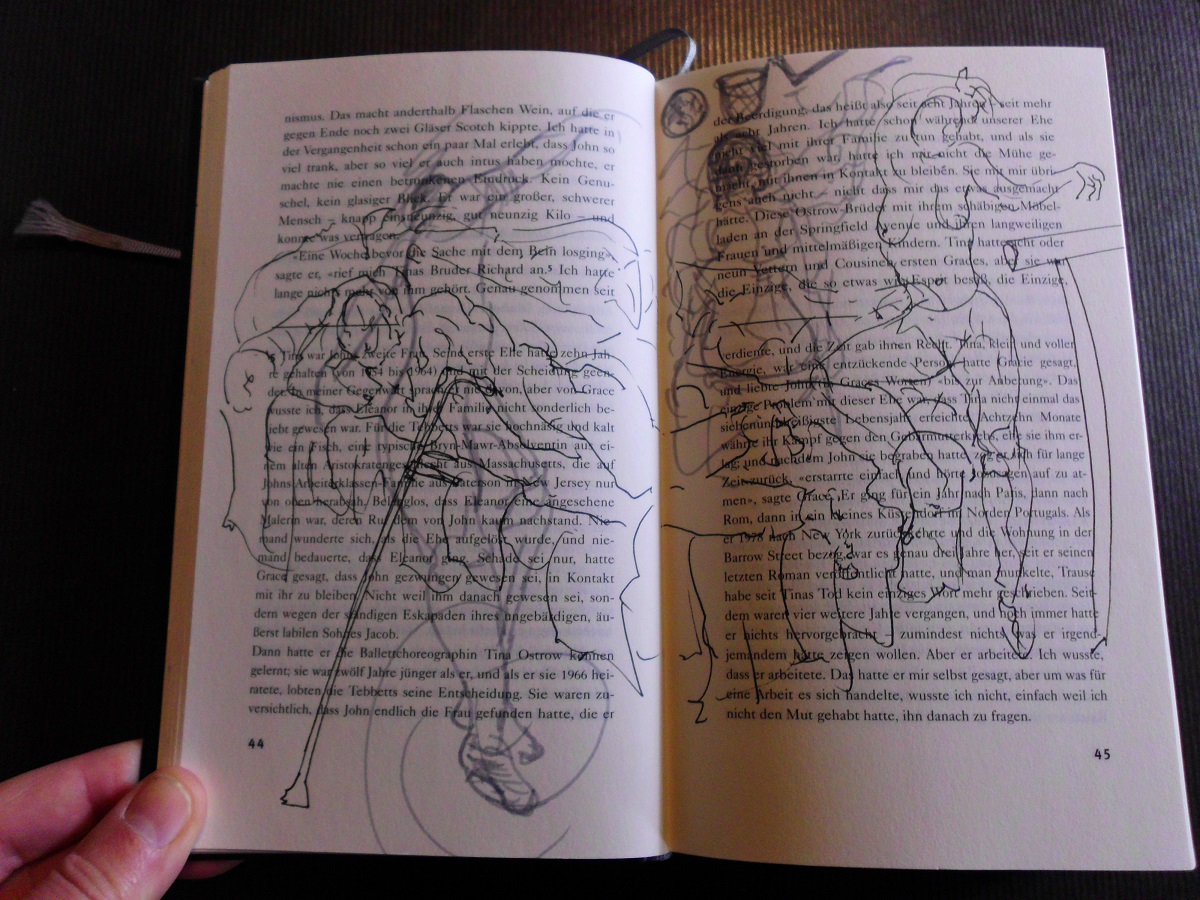 nismus. Das macht anderthalb Flaschen Wein, auf die er
gegen Ende noch zwei Gläser Scotch kippte. Ich hatte in
der Vergangenheit schon ein paar Mal erlebt, dass John so
viel trank, aber so viel er auch intus haben mochte, er
machte nie einen betrunkenen Eindruck. Kein Genu-
schel, kein glasiger Blick. Er war ein großer, schwerer
Mensch – knapp einsneunzig, gut neunzig Kilo – und
konnte was vertragen.
«Eine Woche bevor die Sache mit dem Bein losging»,
sagte er, «rief mich Tinas Bruder Richard an.⁵ Ich hatte
lange nichts mehr von ihm gehört. Genau genommen seit
5 Tina war Johns zweite Frau. Seine erste Ehe hatte zehn Jah-
re gehalten (von 1954 bis 1964) und mit der Scheidung geen-
det. In meiner Gegenwart sprach er nie davon, aber von Grace
wusste ich, dass Eleanor in ihrer Familie nicht sonderlich be-
liebt gewesen war. Für die Tebbetts war sie hochnäsig und kalt
wie ein Fisch, eine typische Bryn-Mawr-Absolventin aus ei-
nem alten Aristokratengeschlecht aus Massachusetts, die auf
Johns Arbeiterklassen-Familie aus Paterson in New Jersey nur
von oben herabsah. Belanglos, dass Eleanor eine angesehene
Malerin war, deren Ruf dem von John kaum nachstand. Nie-
mand wunderte sich, als die Ehe aufgelöst wurde, und nie-
mand bedauerte, dass Eleanor ging. Schade sei nur, hatte
Grace gesagt, dass John gezwungen gewesen sei, in Kontakt
mit ihr zu bleiben. Nicht weil ihm danach gewesen sei, son-
dern wegen der ständigen Eskapaden ihres ungebärdigen, äu-
ßerst labilen Sohnes Jacob.
Dann hatte er die Ballettchoreographin Tina Ostrow kennen
gelernt; sie war zwölf Jahre jünger als er, und als er sie 1966 hei-
ratete, lobten die Tebbetts seine Entscheidung. Sie waren zu-
versichtlich, dass John endlich die Frau gefunden hatte, die er
44
der Beerdigung, das heißt also seit acht Jahren – seit mehr
als acht Jahren. Ich hatte schon während unserer Ehe
nicht viel mit ihrer Familie zu tun gehabt, und als sie
dann gestorben war, hatte ich mir nicht die Mühe ge-
macht, mit ihnen in Kontakt zu bleiben. Sie mit mir übri-
gens auch nicht – nicht dass mir das etwas ausgemacht
hätte. Diese Ostrow-Brüder mit ihrem schäbigen Möbel-
laden an der Springfield Avenue und ihren langweiligen
Frauen und mittelmäßigen Kindern. Tina hatte acht oder
neun Vettern und Cousinen ersten Grades, aber sie war
die Einzige, die so etwas wie Esprit besaß, die Einzige,
verdiente, und die Zeit gab ihnen Recht. Tina, klein und voller
Energie, war eine entzückende Person, hatte Gracie gesagt,
und liebte John (in Graces Worten) «bis zur Anbetung». Das
einzige Problem mit dieser Ehe war, dass Tina nicht einmal das
siebenunddreißigste Lebensjahr erreichte. Achtzehn Monate
währte ihr Kampf gegen den Gebärmutterkrebs, ehe sie ihm er-
lag; und nachdem John sie begraben hatte, zog er sich für lange
Zeit zurück, «erstarrte einfach und hörte sozusagen auf zu at-
men», sagte Grace. Er ging für ein Jahr nach Paris, dann nach
Rom, dann in ein kleines Küstendorf im Norden Portugals. Als
er 1978 nach New York zurückkehrte und die Wohnung in der
Barrow Street bezog, war es genau drei Jahre her, seit er seinen
letzten Roman veröffentlicht hatte, und man munkelte, Trause
habe seit Tinas Tod kein einziges Wort mehr geschrieben. Seit-
dem waren vier weitere Jahre vergangen, und noch immer hatte
er nichts hervorgebracht – zumindest nichts, was er irgend-
jemandem hätte zeigen wollen. Aber er arbeitete. Ich wusste,
dass er arbeitete. Das hatte er mir selbst gesagt, aber um was für
eine Arbeit es sich handelte, wusste ich nicht, einfach weil ich
nicht den Mut gehabt hatte, ihn danach zu fragen.
45